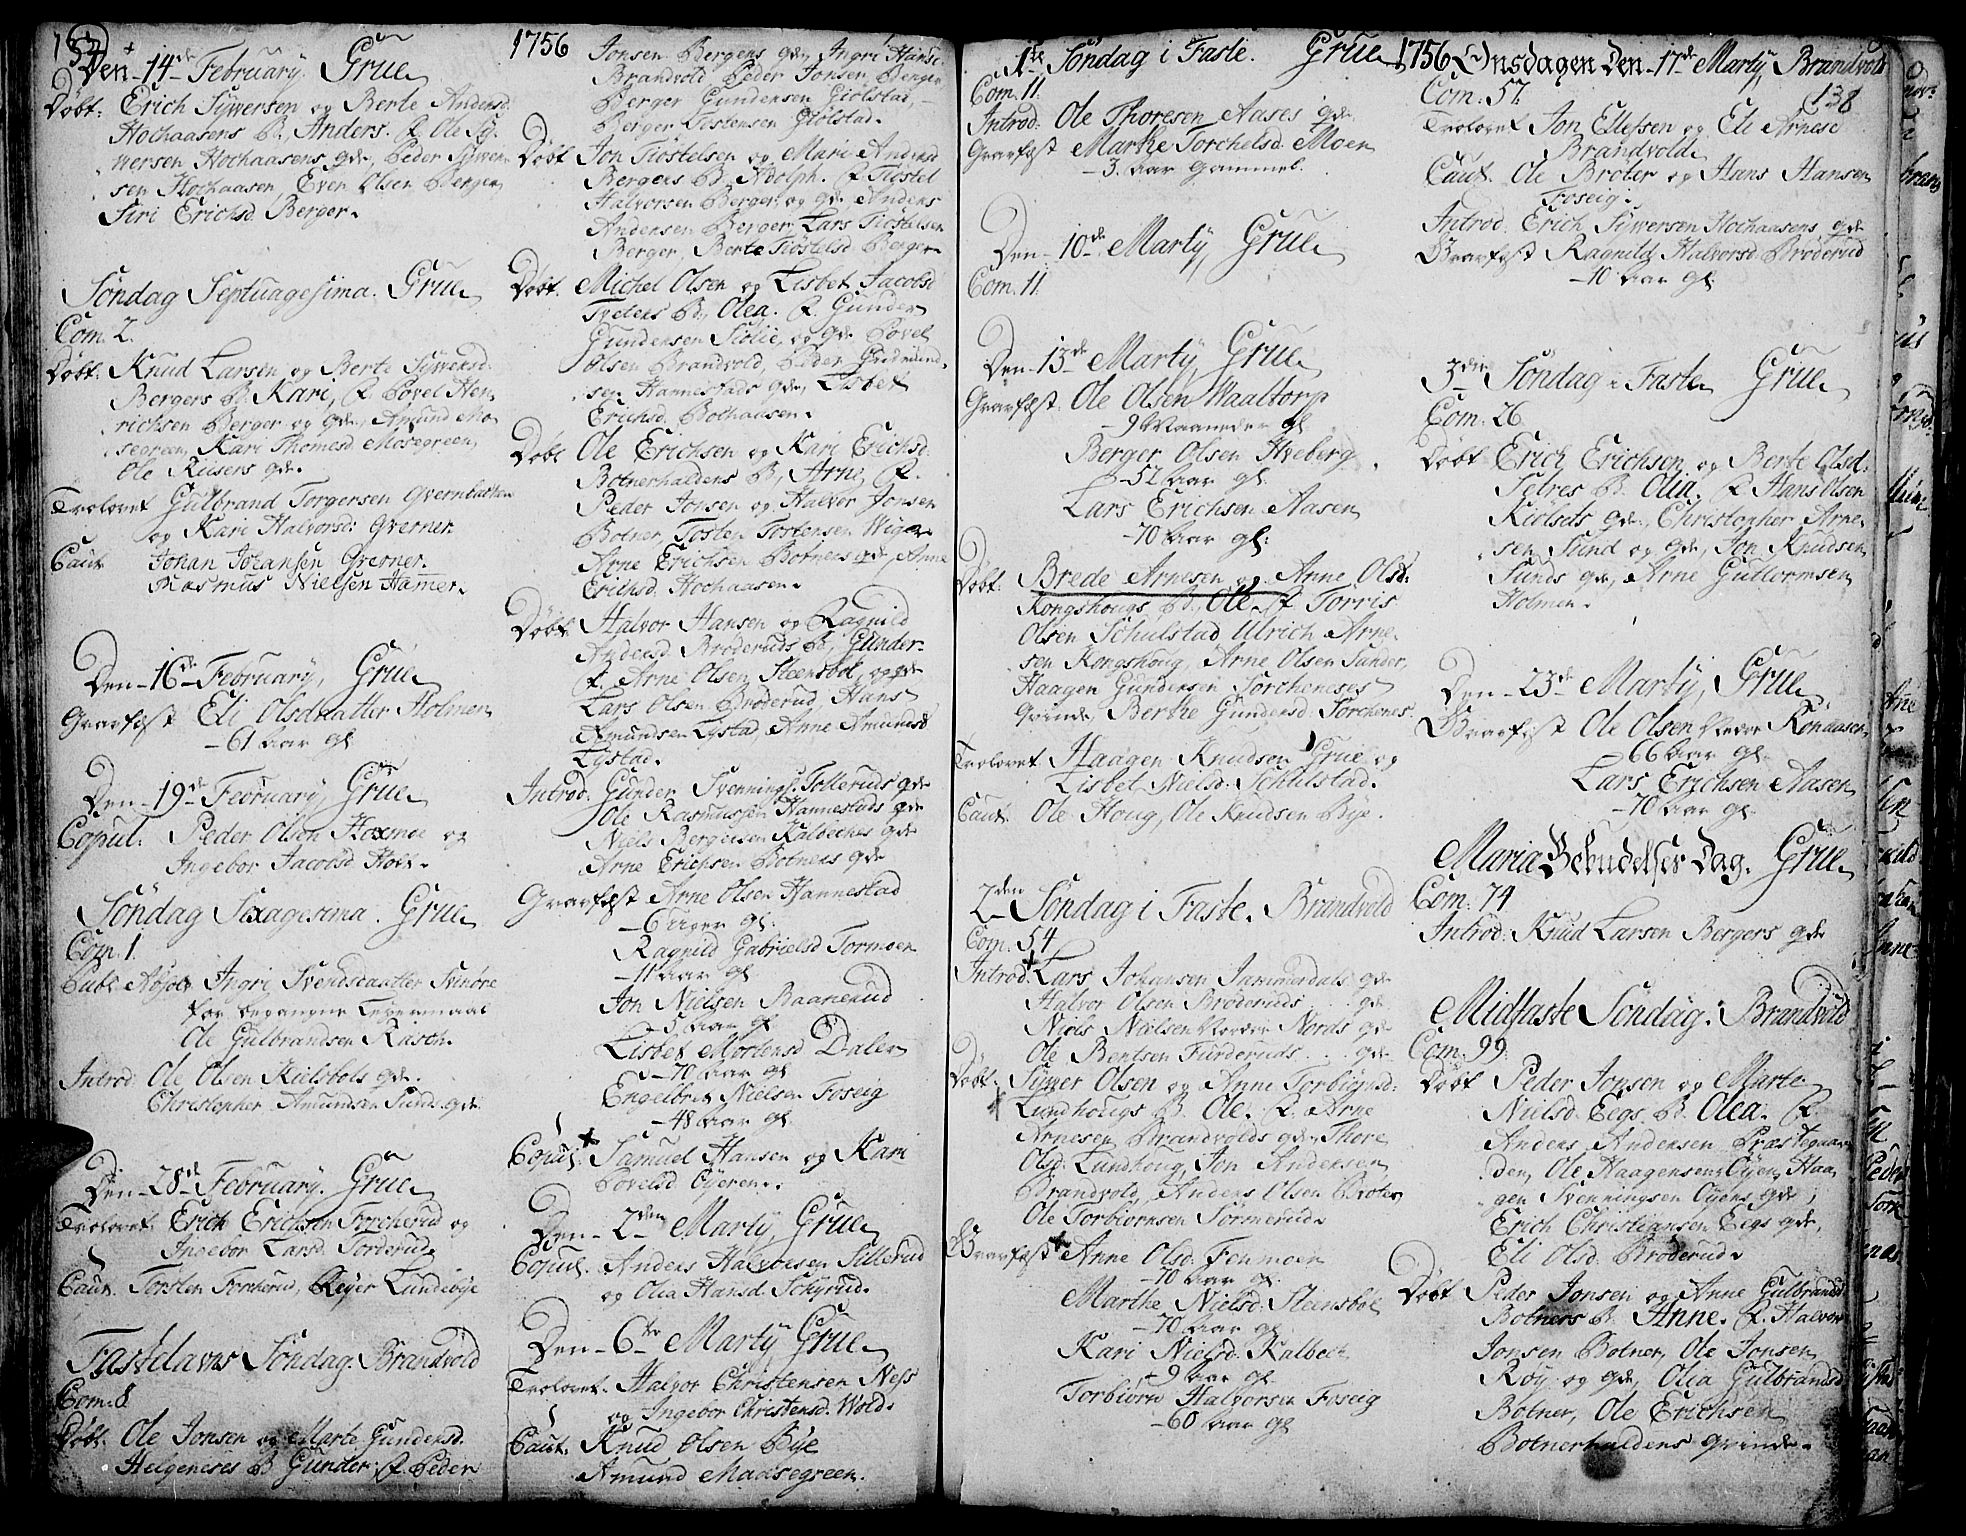 Den 14de February. Grue
Døbt: Erich Sywersen og Berte Andersd.
Hochaasens B. Anders. F. Ole Sy-
wersen Hochaasens qde, Peder Sywer-
sen Hochaasen, Even Olsen Berger,
Siri Erichsd Berger.
Søndag Septuagesima. Grue
Com. 2.
Døbt. Knud Larsen og Berte Sywersd.
Bergers B. Kari, F. Povel Hen-
richsen Berger og qde, Amund Mo-
segreen, Kari Thomesd Mosegreen,
Ole Riisers qde.
Trolovet Gulbrand Torgersen Qvernbachen
og Kari Halvorsd: Qverner
Caut. Johan Johansen Qverner.
Rasmus Nielsen Hamer.
Den 16de February, Grue
Gravfæst Eli Olsdaatter Holmen
61 Aar gl
Den 19de February, Grue
Copul: Peder Olsen Hoxmoe og
Ingebor Jacobsd Hoxr.
Søndag Sexagesima. Grue
Com. 1.
Publ. Absol. Ingri Svendsdaatter Svinøre
for begangne Leyermaal
Ole Gulbrandsen Rasch.
Introd: Ole Olsen Kielsbols qde.
Christopher Amundsen Sunds qde
Den 28de February. Grue
Trolovet Erich Erichsen Torcherud og
Ingebor Larsd Torderud
Caut. Torsten Torcherud, Reyer Lundebye
Fastelavns Søndag. Brandvold
Com: 8
Døbt. Ole Jonsen og Marte Gundersd.
Helgeneses B Gunder, F. Peder
1756
Jonsen Bergers qde, Ingri Hansd
Brandvold Peder Jonsen Berger
Berger Gundersen Giølstad,
Berger Tostensen Giølstad.
Døbt Jon Tiøstelsen og Mari Andersd
Bergers B. Adolph. F. Tiøstel
Halvorsen Berger og qde Anders
Andersen Berger, Lars Tiøstelsen
Berger, Berte Tiøstelsd Berger
Døbt. Michel Olsen og Lisbet Jacobsd
Tvetens B. Olea. F. Gunder
Gundersen Siølie, og qde Povel
Olsen Brandvold, Peder Gudmund-
sen Hannestads qde, Lisbet
Erichsd. Bothaasen.
Døbt Ole Erichsen og Kari Erichsd.
Botnerhaldens B, Arne, F.
Peder Jonsen og Halvor Jonsen
Botner, Tosten Tostensen Wiger
Arne Erichsen Botners qde, Anne
Erichsd. Hochaasen.
Døbt Halvor Hansen og Ragnild
Andersd Brøderuds B, Gunder.
F. Arne Olsen Steensbøl, og qde
Lars Olsen Brøderud, Hans
Amundsen Lystad, Anne Amundsd
Lystad.
Introd: Gunder Svennings. Tolleruds qde
Ole Rasmussen Hannestads qde
Niels Bergersen Kalbechs qde
Arne Erichsen Botners qde
Gravfæst Arne Olsen Hannestad
6 uger gl.
Ragnild Gabrielsd Tormoen
11 aar gl
Jon Nielsen Baanerud
5 aar gl
Lisbet Mortensd Dalen
70 aar gl
Engelbret Nielsen Foseig
48 aar gl
Copul: Samuel Hansen og Kari
Povelsd Øyeren.
Den 2den Marty, Grue
Copul. Anders Halvorsen Sillerud
og Olia Hansd. Schyrud.
Den 6te Marty Grue
Trolovet. Halvor Christensen Ness
og Ingebor Christensd. Wold.
Caut. Knud Olsen Bye
Amund Maasegreen.
1ste Søndag i Faste. Grue
Com. 11.
Introd: Ole Thoresen Aases qde.
Gravfæst Marthe Torchelsd. Moen
3 Aar gammel.
Den 10de Marty, Grue
Com. 11.
Den 13de Marty, Grue
Gravfæst. Ole Olsen Waaltorp
9 Maaneder gl
Berger Olsen Hveberg
52 Aar gl.
Lars Erichsen Aasen
70 Aar gl:
Døbt: Brede Arnesen og Anne Olsd:
Kongshougs B, Ole. F. Torris
Olsen Schulstad Ulrich Arne-
sen Kongshoug, Arne Olsen Sunder,
Haagen Gundersen Torcheneses
qvinde, Berthe Gundersd: Torchenes.
Trolovet Haagen Knudsen Grue og
Lisbet Nielsd: Schulstad.
Caut. Ole Houg, Ole Knudsen Bye.
2den Søndag i Faste. Brandvold
Com. 54
Introd: Lars Johansen Jammerdals qde
Halvor Olsen Brøderuds qde
Niels Nielsen Nordre Nords qde
Ole Bentsen Furderuds qde
Døbt: Sywer Olsen og Anne Torbiørnsd:
Lundhougs B. Ole. F. Arne
Arnesen Brandvolds qde Thore
Olsd: Lundhoug, Jon Andersen
Brandvold, Anders Olsen Broter
Ole Torbiørnsen Sørmerud.
Gravfæst Anne Olsd. Fenmoen
70 aar gl.
Marthe Nielsd: Steensbøl
70 aar gl
Kari Nielsd: Kalbech
9 aar gl
Torbiørn Halvorsen Foseig
60 aar gl
1756 Onsdagen Den 17de Marty Brandvold
138
Com: 57
Trolovet Jon Ellefsen og Eli Arnesd
Brandvold
Caut. Ole Broter og Hans Hansen
Foseig.
Introd. Erich Sywersen Hochaasens qde
Gravfæst Ragnild Halvorsd: Brøderud
10 Aar gl:
3die Søndag i Faste Grue
Com: 26
Døbt Erich Erichsen og Berte Olsd:
Setres B. Olia. F. Hans Olsen
Kiolsets qde, Christopher Arne-
sen Sund og qde, Jon Knudsen
Sunds qde, Arne Guttormsen
Holmen.
Den 23de Marty, Grue
Gravfæst Ole Olsen Nedre Rønaasen
66 aar gl.
Lars Erichsen Aasen
70 aar gl.
Mariæ Bebudelses Dag. Grue
Com: 74
Introd: Knud Larsen Bergers qde
Midfaste Søndag. Brandvold
Com. 99.
Døbt Peder Jonsen og Marte
Nielsd. Eegs B. Olea. F.
Anders Andersen Præstegaar-
den, Ole Haagensen Øyen, Haa-
gen Svenningsen Øyens qde,
Erich Christiansen Eegs qde,
Eli Olsd. Brøderud.
Døbt Peder Jonsen og Anne Gulbrandsd
Botners B. Anne. F. Halvor
Jonsen Botner, Ole Jonsen
Røy og qde, Olia Gulbrandsd
Botner, Ole Erichsen
Botnerhaldens qvinde.